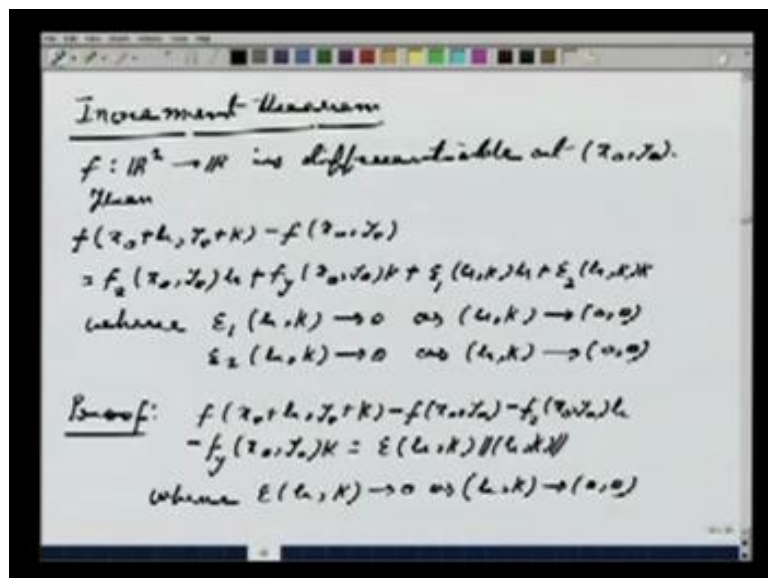 Increment theorem
f : ℝ² → ℝ is differentiable at (x₀, y₀).
Then
f(x₀+h, y₀+k) - f(x₀, y₀)
= fₓ(x₀, y₀)h + f_y(x₀, y₀)k + ε₁(h,k)h + ε₂(h,k)k
where ε₁(h,k) → 0 as (h,k) → (0,0)
ε₂(h,k) → 0 as (h,k) → (0,0)
Proof: f(x₀+h, y₀+k) - f(x₀, y₀) - fₓ(x₀, y₀)h
- f_y(x₀, y₀)k = ε(h,k) ||(h,k)||
where ε(h,k) → 0 as (h,k) → (0,0)